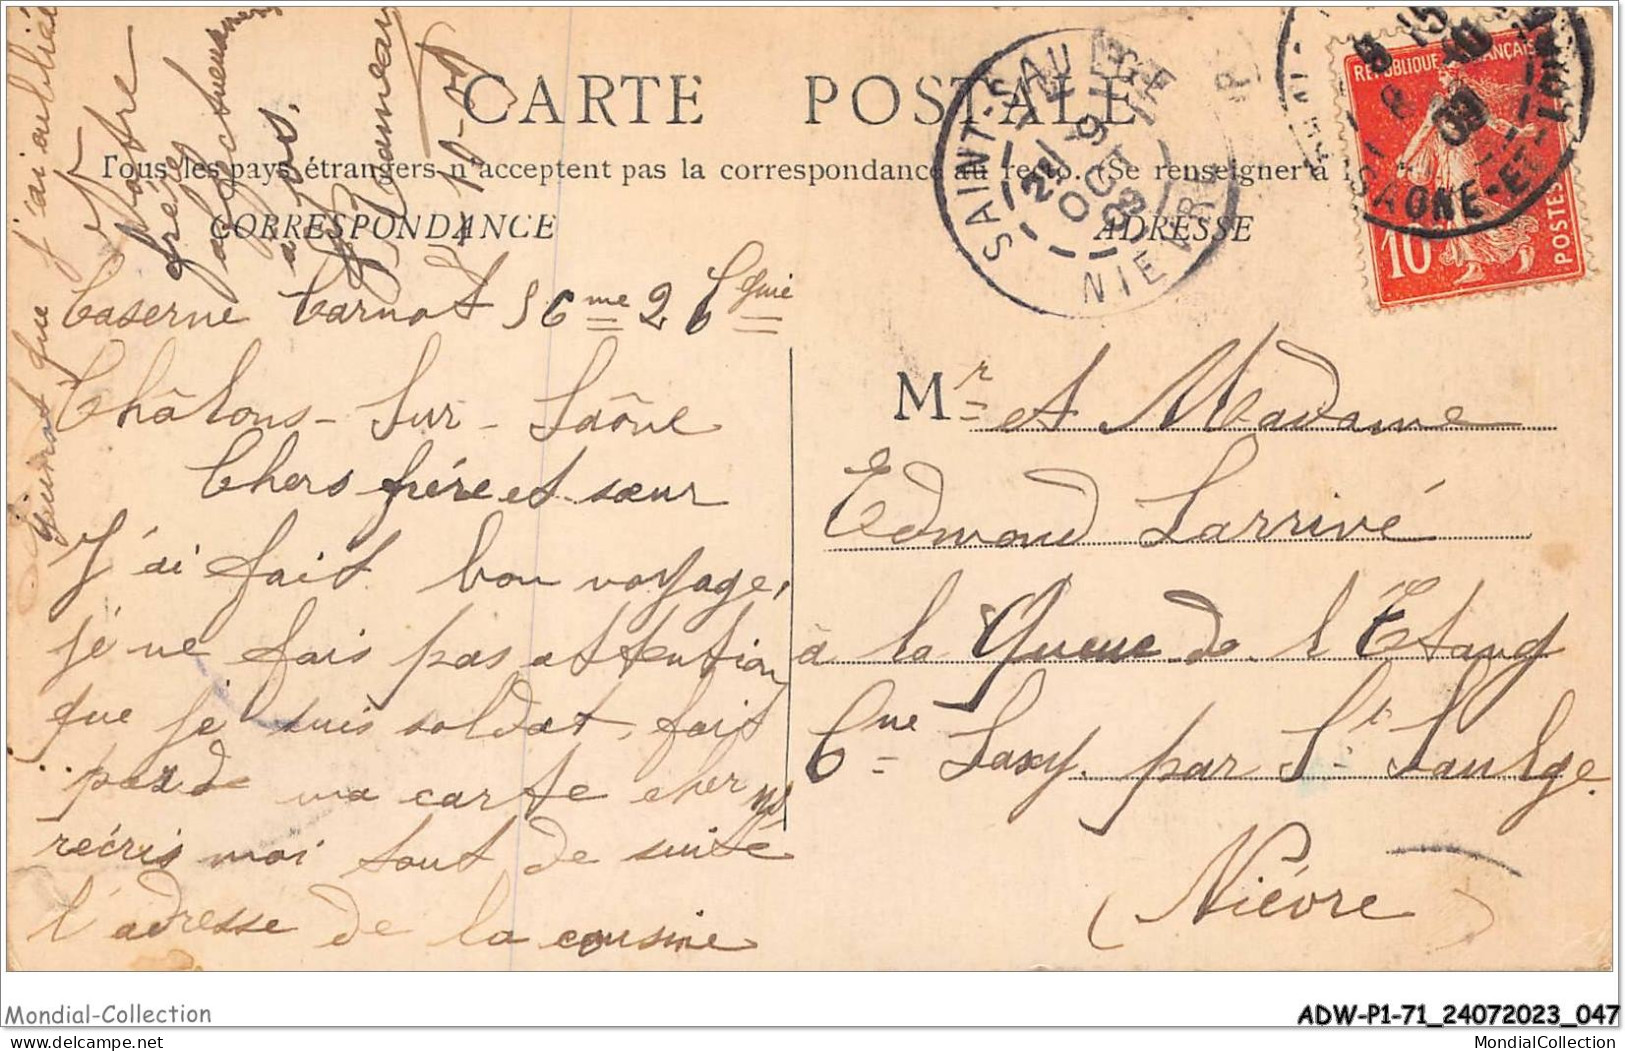 CARTE POSTALE
Tous les pays étrangers n'acceptent pas la correspondance au recto. (Se renseigner à
CORRESPONDANCE
ADRESSE
Caserne Carnot 56me 26 Cgnie
Châlons-Sur-Saône
Chers frére et sœur
J'ai fait bon voyage,
je ne fais pas attention
que je suis soldat, fait
part de ma carte cher
récris moi tout de suite
l'adresse de la cousine
Guinot que j'ai oublié
Votre
frère
affectueux
10-09
Mr et Madame
Edmond Larrivé
à la Queue de l'Etang
Cne Saxy par St Saulge
(Nièvre)
SAINT-SAULGE
NIEVRE
9
OCT
09
REPUBLIQUE FRANÇAISE
10
POSTES
SAONE-ET-LOIRE
8
09
Mondial-Collection
ADW-P1-71_24072023_047
delcampe.net
MondialCollection